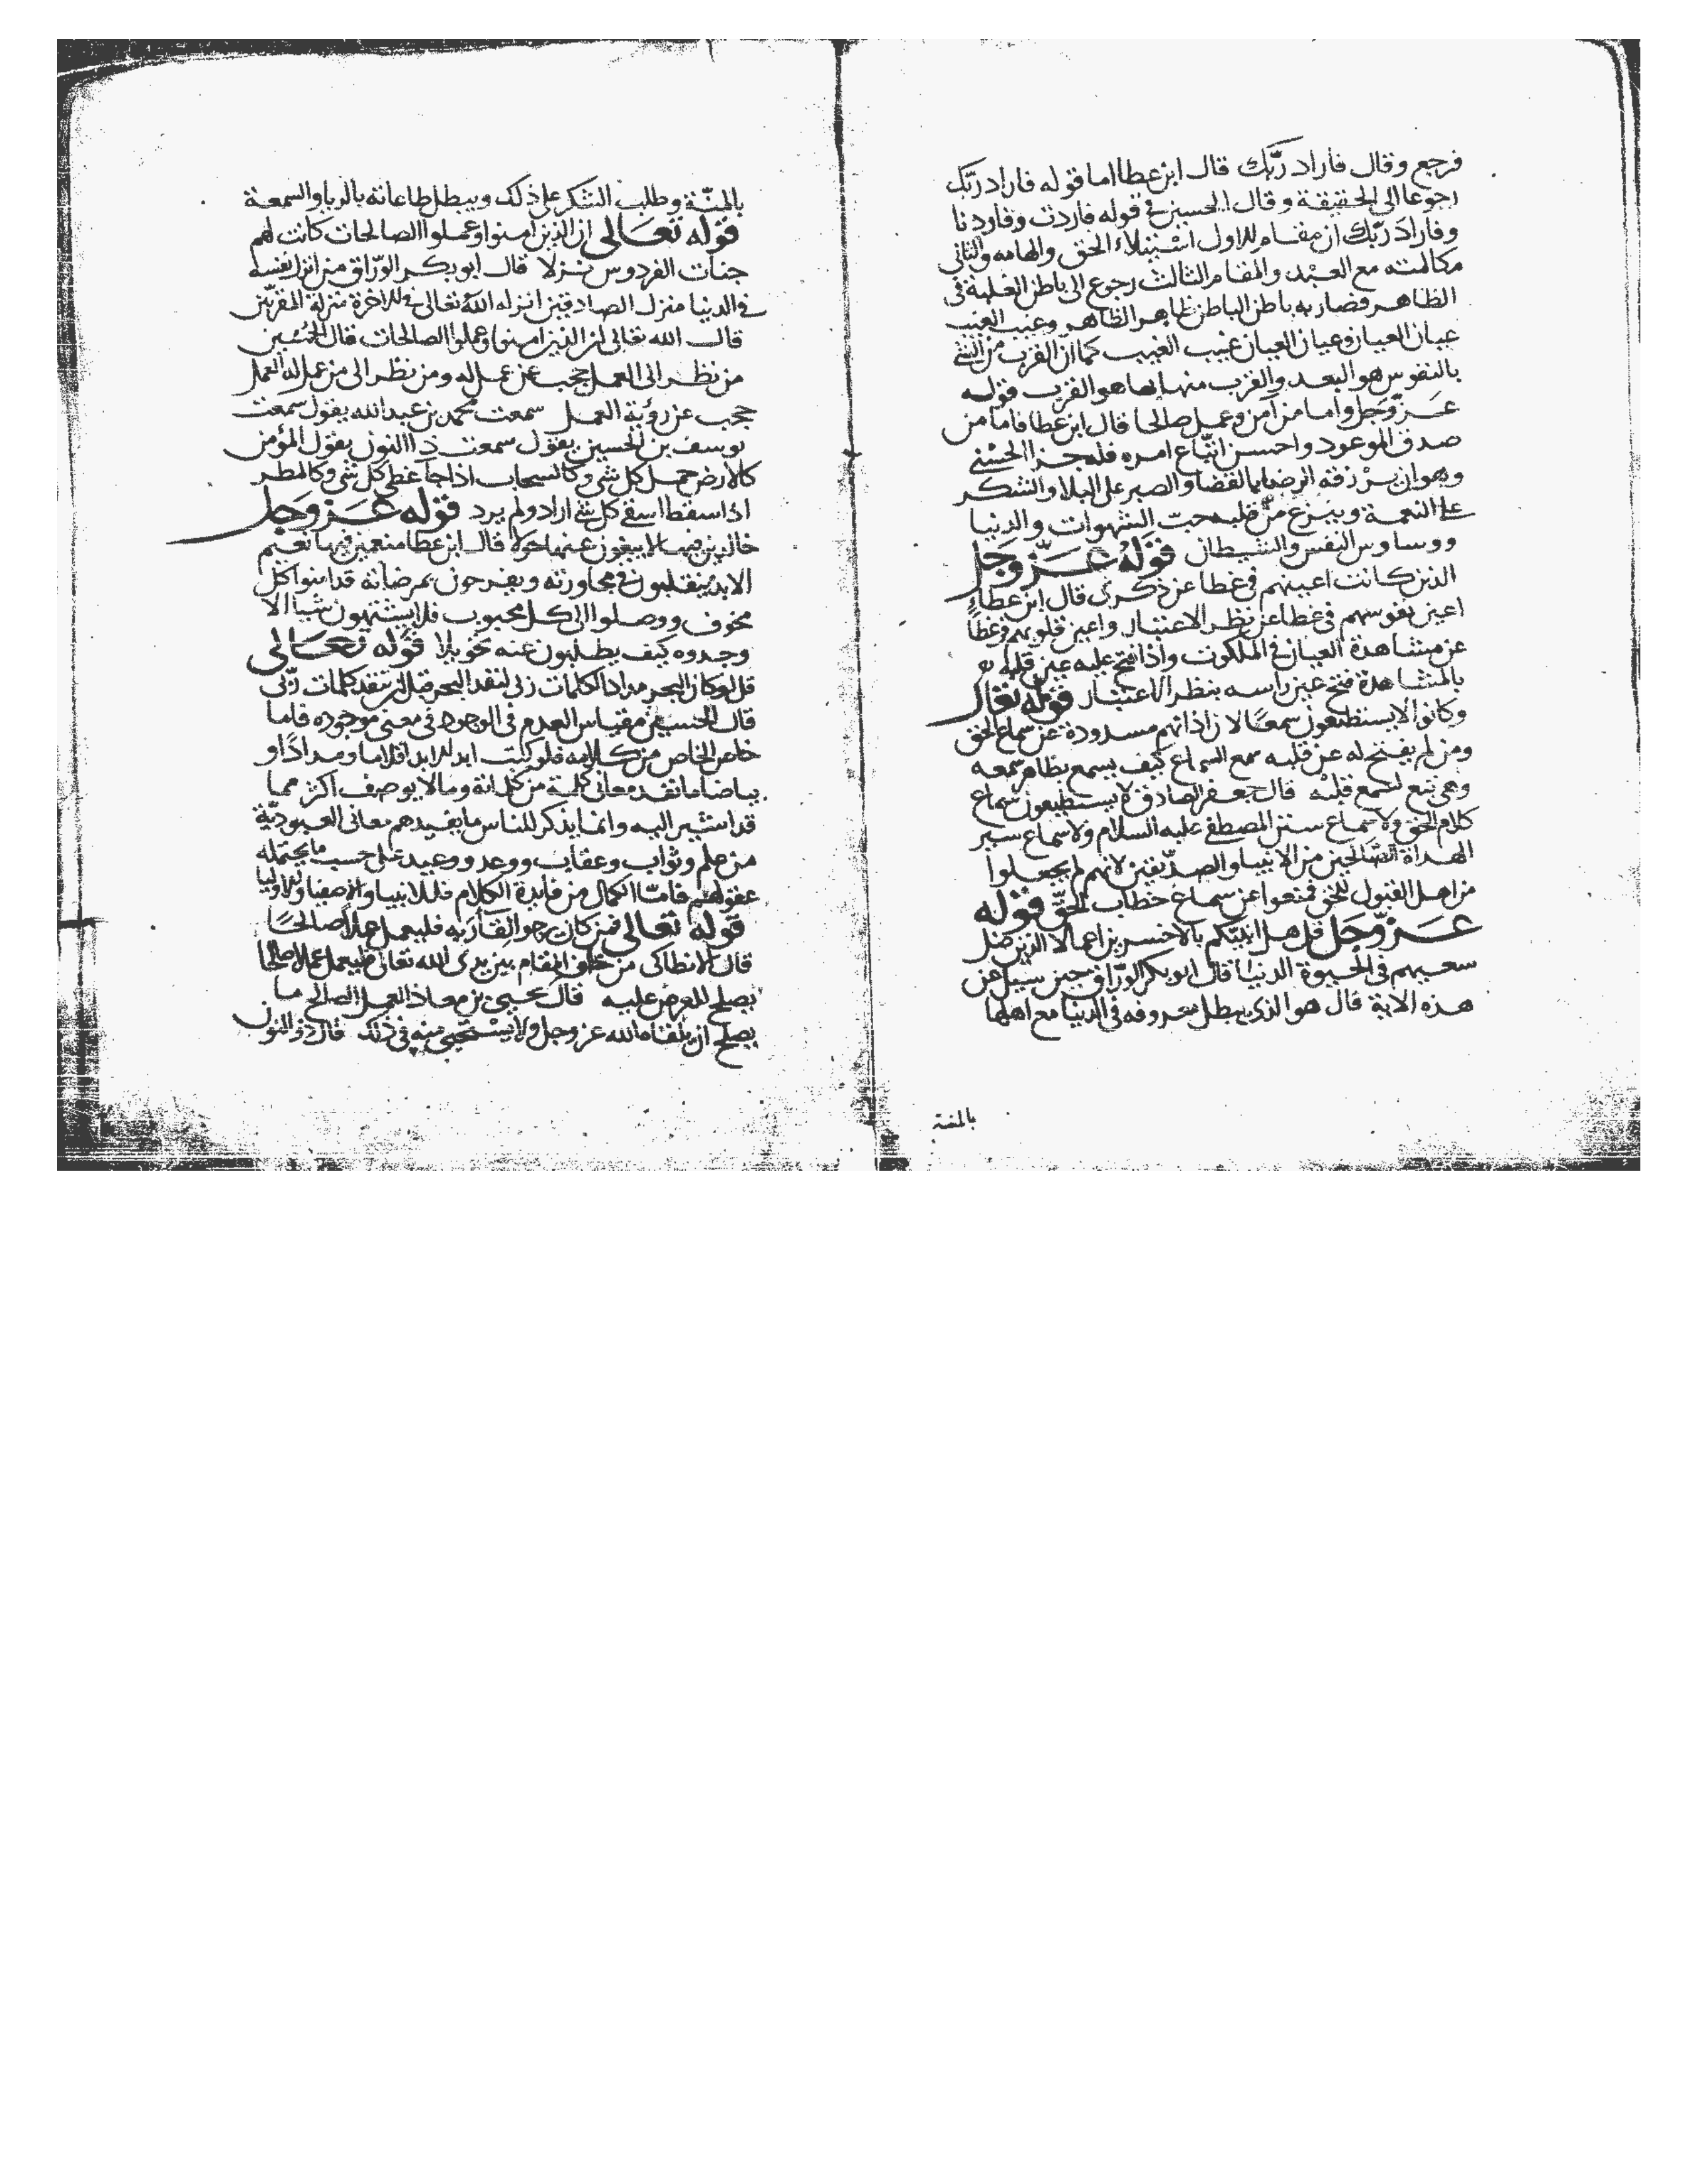 فرجع وقال فاراد ربّك قال ابن عطا اما قوله فاراد ربّك
رجوعا الى الحقيقة وقال الحسين في قوله فاردت وفاردنا
وفاراد ربّك ان مقام الاول استيلاء الحق والهامه والثاني
مكالمته مع العبد والمقام الثالث رجوع الى باطن الغلبة في
الظاهر فصار به باطن الباطن ظاهر الظاهر وغيب الغيب
عيان العيان وعيان العيان غيب الغيب كما ان القرب من الشي
بالنفوس هو البعد والقرب منها بها هو القرب قوله
عزّ وجل واما من آمن وعمل صالحا قال ابن عطا فاما من
صدق الموعود واحسن اتباع امره فله جزا الحسنى
وهو ان يرزقه الرضا بالقضا والصبر على البلا والشكر
على النعمة وينزع من قلبه حبّ الشهوات والدنيا
ووساوس النفس والشيطان قوله عزّ وجل
الذين كانت اعينهم في غطا عن ذكرى قال ابن عطاء
اعين نفوسهم في غطا عن نظر الاعتبار واعين قلوبهم في غطا
عن مشاهدة الغيبان في الملكوت واذا فتح عليه عين قلبه
بالمشاهدة فتح عين راسه بنظر الاعتبار قوله تعالى
وكانوا لا يستطيعون سمعًا لان اذانهم مسدودة عن سماع الحق
ومن لم يفتح له عن قلبه سمع السماع كيف يسمع بظاهر سمعه
وهي تبع لسمع قلبه قال جعفر الصادق لا يستطيعون سماع
كلام الحق ولا سماع سنن المصطفى عليه السلام ولا سماع سير
الهداة الصالحين من الانبيا والصدّيقين لانهم لم يجعلوا
من اهل القبول للحق فمنعوا عن سماع خطاب الحقّ قوله
عزّ وجل قل هل انبئكم بالاخسرين اعمالا الذين ضل
سعيهم في الحيوة الدنيا قال ابو بكر الورّاق حين سيل عن
هذه الاية قال هو الذي يبطل معروفه في الدنيا مع اهلها
بالمنة
بالمنّة وطلب الشكر على ذلك ويبطل طاعاته بالريا والسمعة
قوله تعالى ان الذين امنوا وعملوا الصالحات كانت لهم
جنات الفردوس نزلا قال ابو بكر الورّاق من انزل نفسه
في الدنيا منزل الصادقين انزله الله تعالى في الاخرة منزلة المقرّبين
قال الله تعالى ان الذين امنوا وعملوا الصالحات قال الحسين
من نظر الى العمل حجب عن عمل له ومن نظر الى من عمل له العمل
حجب عن رؤية العمل سمعت محمد بن عبد الله يقول سمعت
يوسف بن الحسين يقول سمعت ذا النون يقول المؤمن
كالارض حمل كل شي وكالسحاب اذا جا غطى كل شي وكالمطر
اذا سقط اسقى كل شي اراد ولم يرد قوله عزّ وجل
خالدين فيها لا يبغون عنها حولا قال ابن عطا منعمين فيها نعيم
الابد يتقلبون في مجاورته ويفرحون بمرضاته قد امنوا كل
مخوف ووصلوا الى كل محبوب فلا يشتهون شيا الا
وجدوه كيف يطلبون عنه تحويلا قوله تعالى
قل لو كان البحر مدادا لكلمات ربى لنفد البحر قبل ان تنفد كلمات ربّى
قال الحسين مقياس العدم في الوجود في معنى موجوده فاما
خاص الخاص من كلامه فلو كتب ابد الابد اقلاما ومدادًا و
بياضا ما نفد معانى كلمة من كلماته وما لا يوصف اكثر مما
قد اشير اليه وانما يذكر للناس ما يفيدهم معانى العبوديّة
من علم وثواب وعقاب ووعد ووعيد على حسب ما يحتمله
عقولهم فامّا الكمال من فايدة الكلام فللانبيا والاصفيا والاوليا
قوله تعالى فمن كان يرجوا لقا ربه فليعمل عملا صالحًا
قال الانطاكى من خاف المقام بين يدى الله تعالى فليعمل عملا صالحا
يصلح للعرض عليه قال يحيى بن معاذ العمل الصالح ما
يصلح ان يلقا به الله عز وجل ولا يستحيى منه في ذلك قال ذو النون